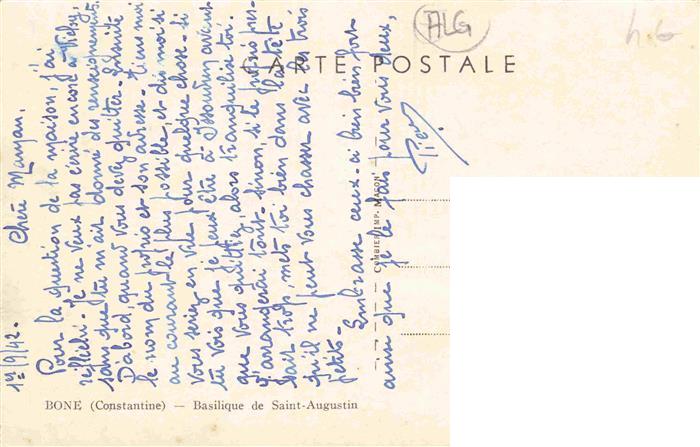 ALG
h.G
CARTE POSTALE
1er/9/42.
Chère Maman,
Pour la question de la maison, j'ai
réfléchi. Je ne veux pas écrire encore à
sans que tu m'ait donné des renseignements.
D'abord, quand vous devez quitter. Ensuite
le nom du proprio et son adresse. Tiens moi
au courant le plus possible, et dis moi si
vous seriez en vue pour quelque chose. Si
tu vois que je peux être à Issoudun avant
que vous quittiez, alors tranquilise toi.
J'arrangerai tout. Sinon, si le proprio pres-
sait trop, mets toi bien dans la tête
qu'il ne peut vous chasser avec les trois
petits.
Embrasse ceux-ci bien bien fort
ainsi que je le fais pour vous deux,
COMBIER IMP. MACON
BONE (Constantine) — Basilique de Saint-Augustin